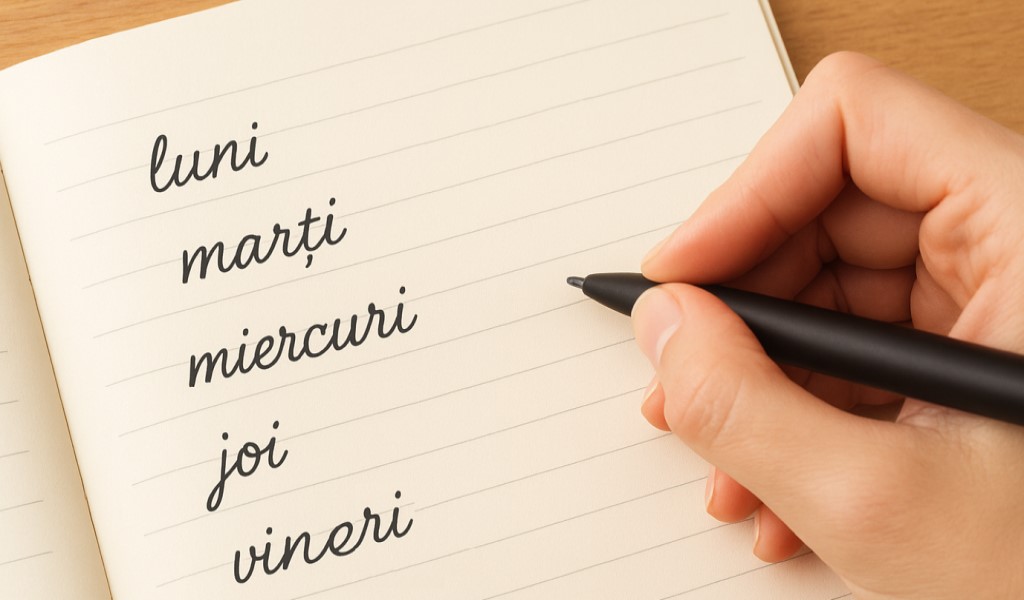 luni
marți
miercuri
joi
vineri